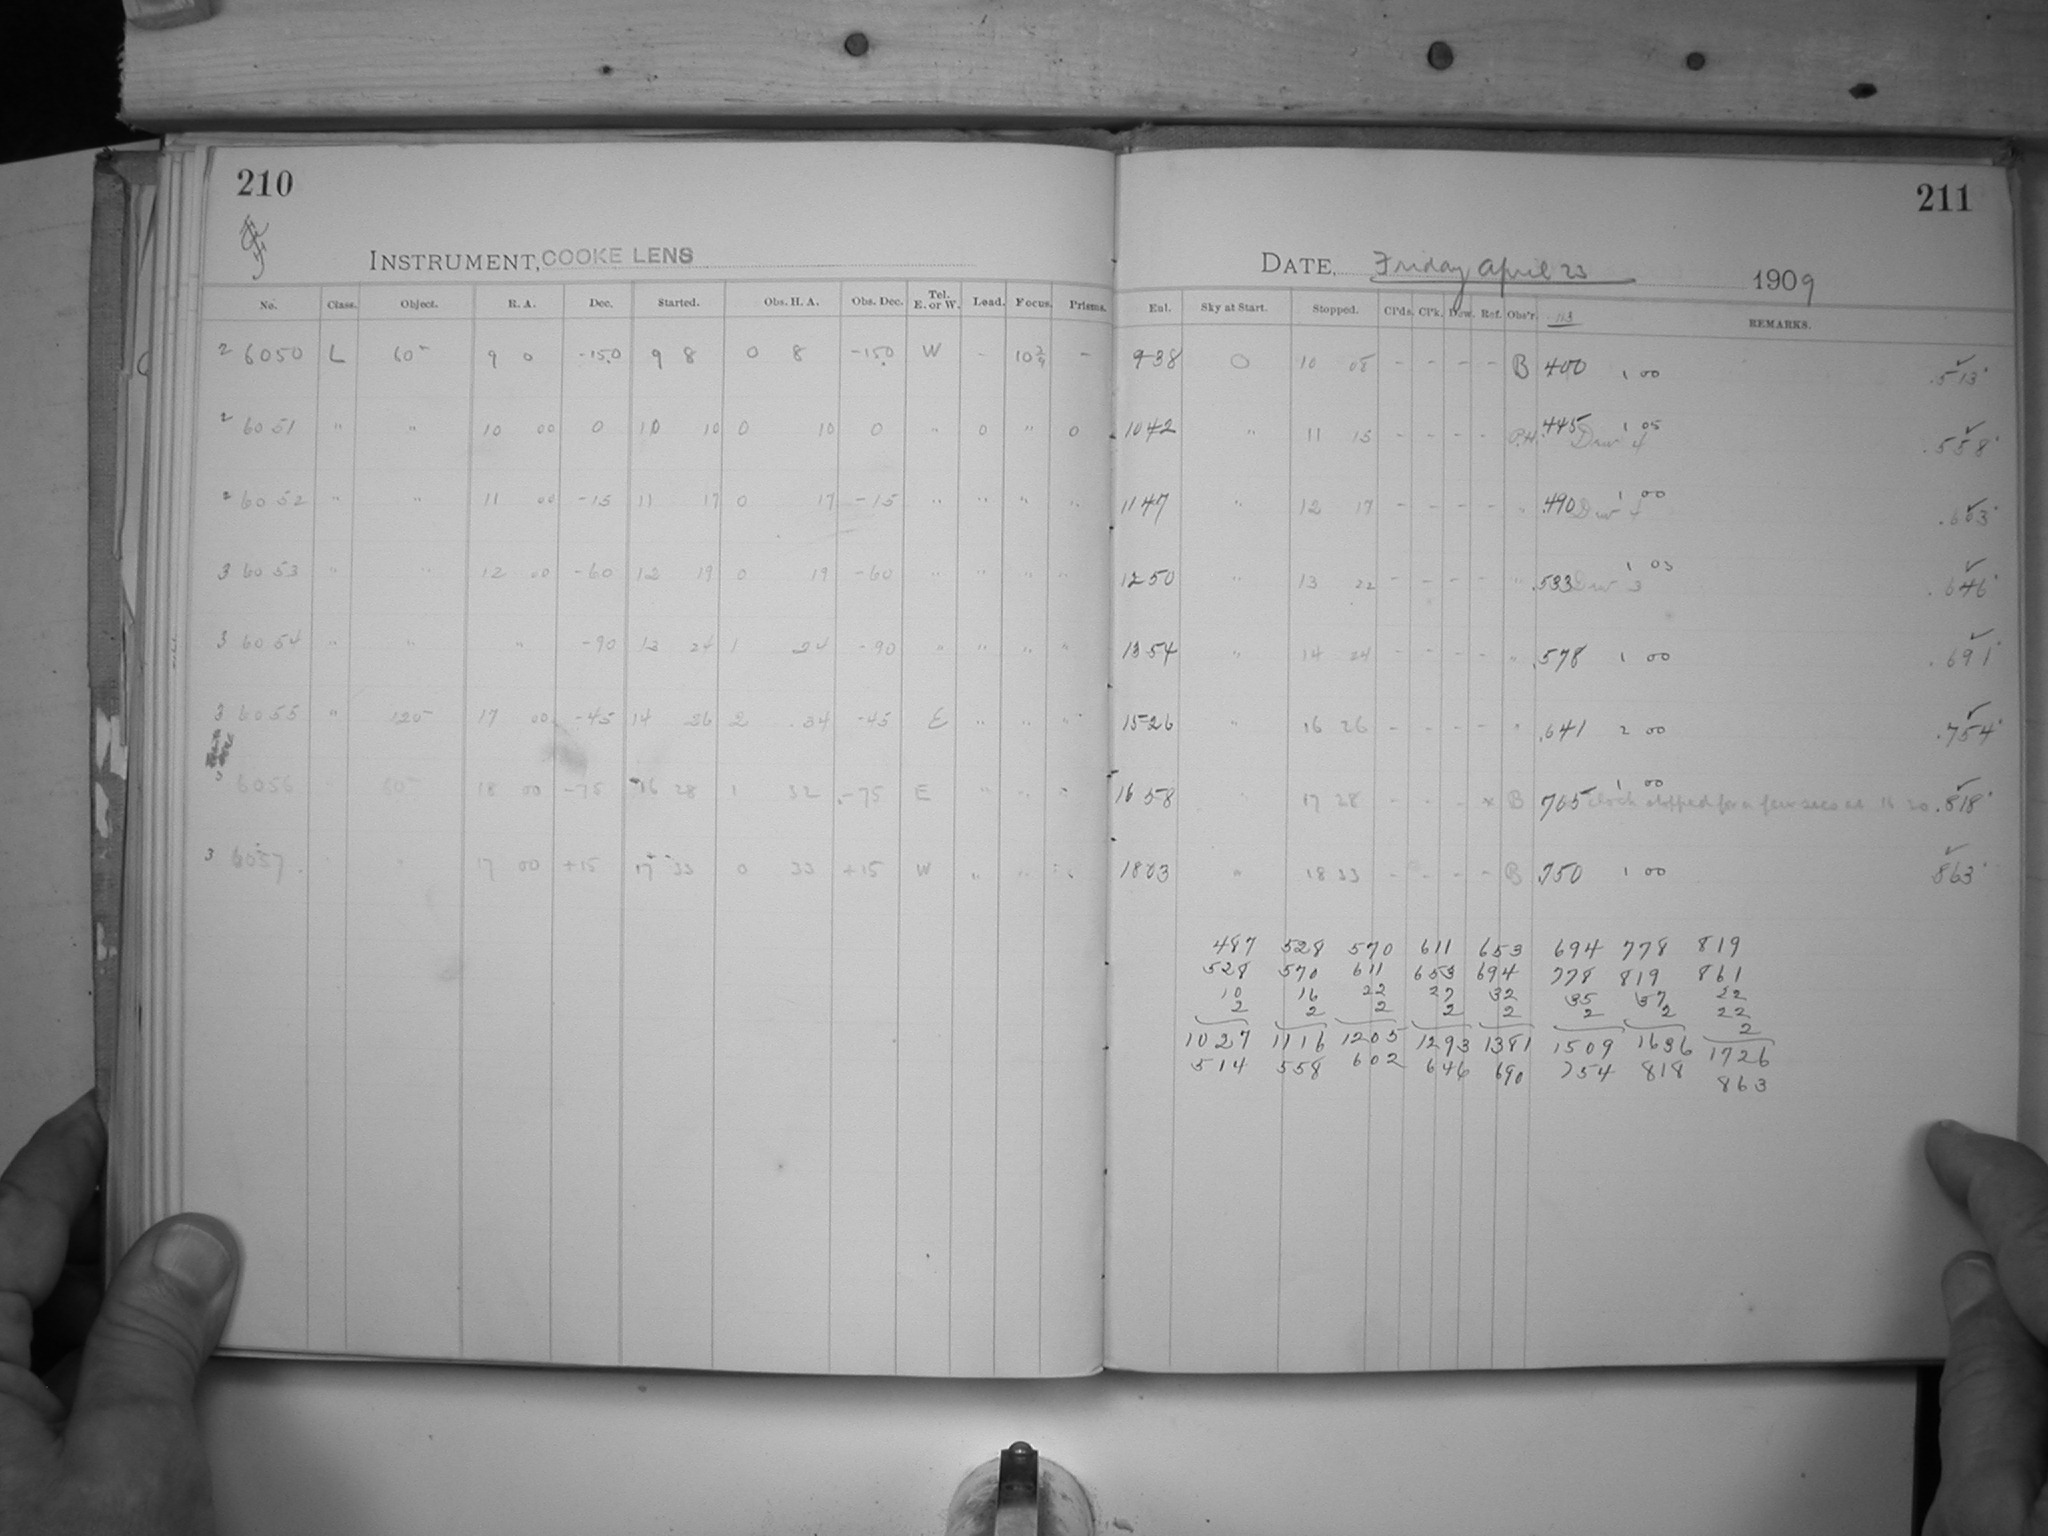 210
INSTRUMENT, COOKE LENS
No. Class. Object. R. A. Dec. Started. Obs. H. A. Obs. Dec. Tel. E. or W. Lead. Focus. Prisms.
2 6050 L 60 9 0 -15.0 9 8 0 8 -150 W - 10 -
2 6051 " " 10 00 0 10 10 0 10 0 " 0 " 0
2 6052 " " 11 00 -15 11 17 0 17 -15 " " " "
3 6053 " " 12 00 -60 12 19 0 19 -60 " " " "
3 6054 " " " -90 13 24 1 24 -90 " " " "
3 6055 " 120 17 00 -45 14 26 2 34 -45 E " " "
3 6056 60 18 00 -75 16 28 1 32 -75 E " " "
3 6057 " 17 00 +15 17 33 0 33 +15 W " " "
211
DATE, Friday April 23 1909
Enl. Sky at Start. Stopped. Cl'ds. Cl'k. Dew. Ref. Obs'r. 113 REMARKS.
938 0 10 08 - - - - B 400 1 00 .513
1042 " 11 15 - - - - P.H. .445 Dew 4 1 05 .558
1147 " 12 17 - - - - " .490 Dew 1 00 .603
1250 " 13 22 - - - - " .533 Dew 3 1 03 .646
1354 " 14 24 - - - - " .578 1 00 .691
1526 " 16 26 - - - - " .641 2 00 .754
1658 17 28 - - - x B 705 1 00 clock stopped for a few secs at 16 30 .818
1803 " 18 33 - - - - B .750 1 00 863
487 528 570 611 653 694 778 819
528 570 611 653 694 778 819 861
10 16 22 27 32 35 37 22
2 2 2 2 2 2 2 22
2
1027 1116 1205 1293 1381 1509 1636 1726
514 558 602 646 690 754 818 863